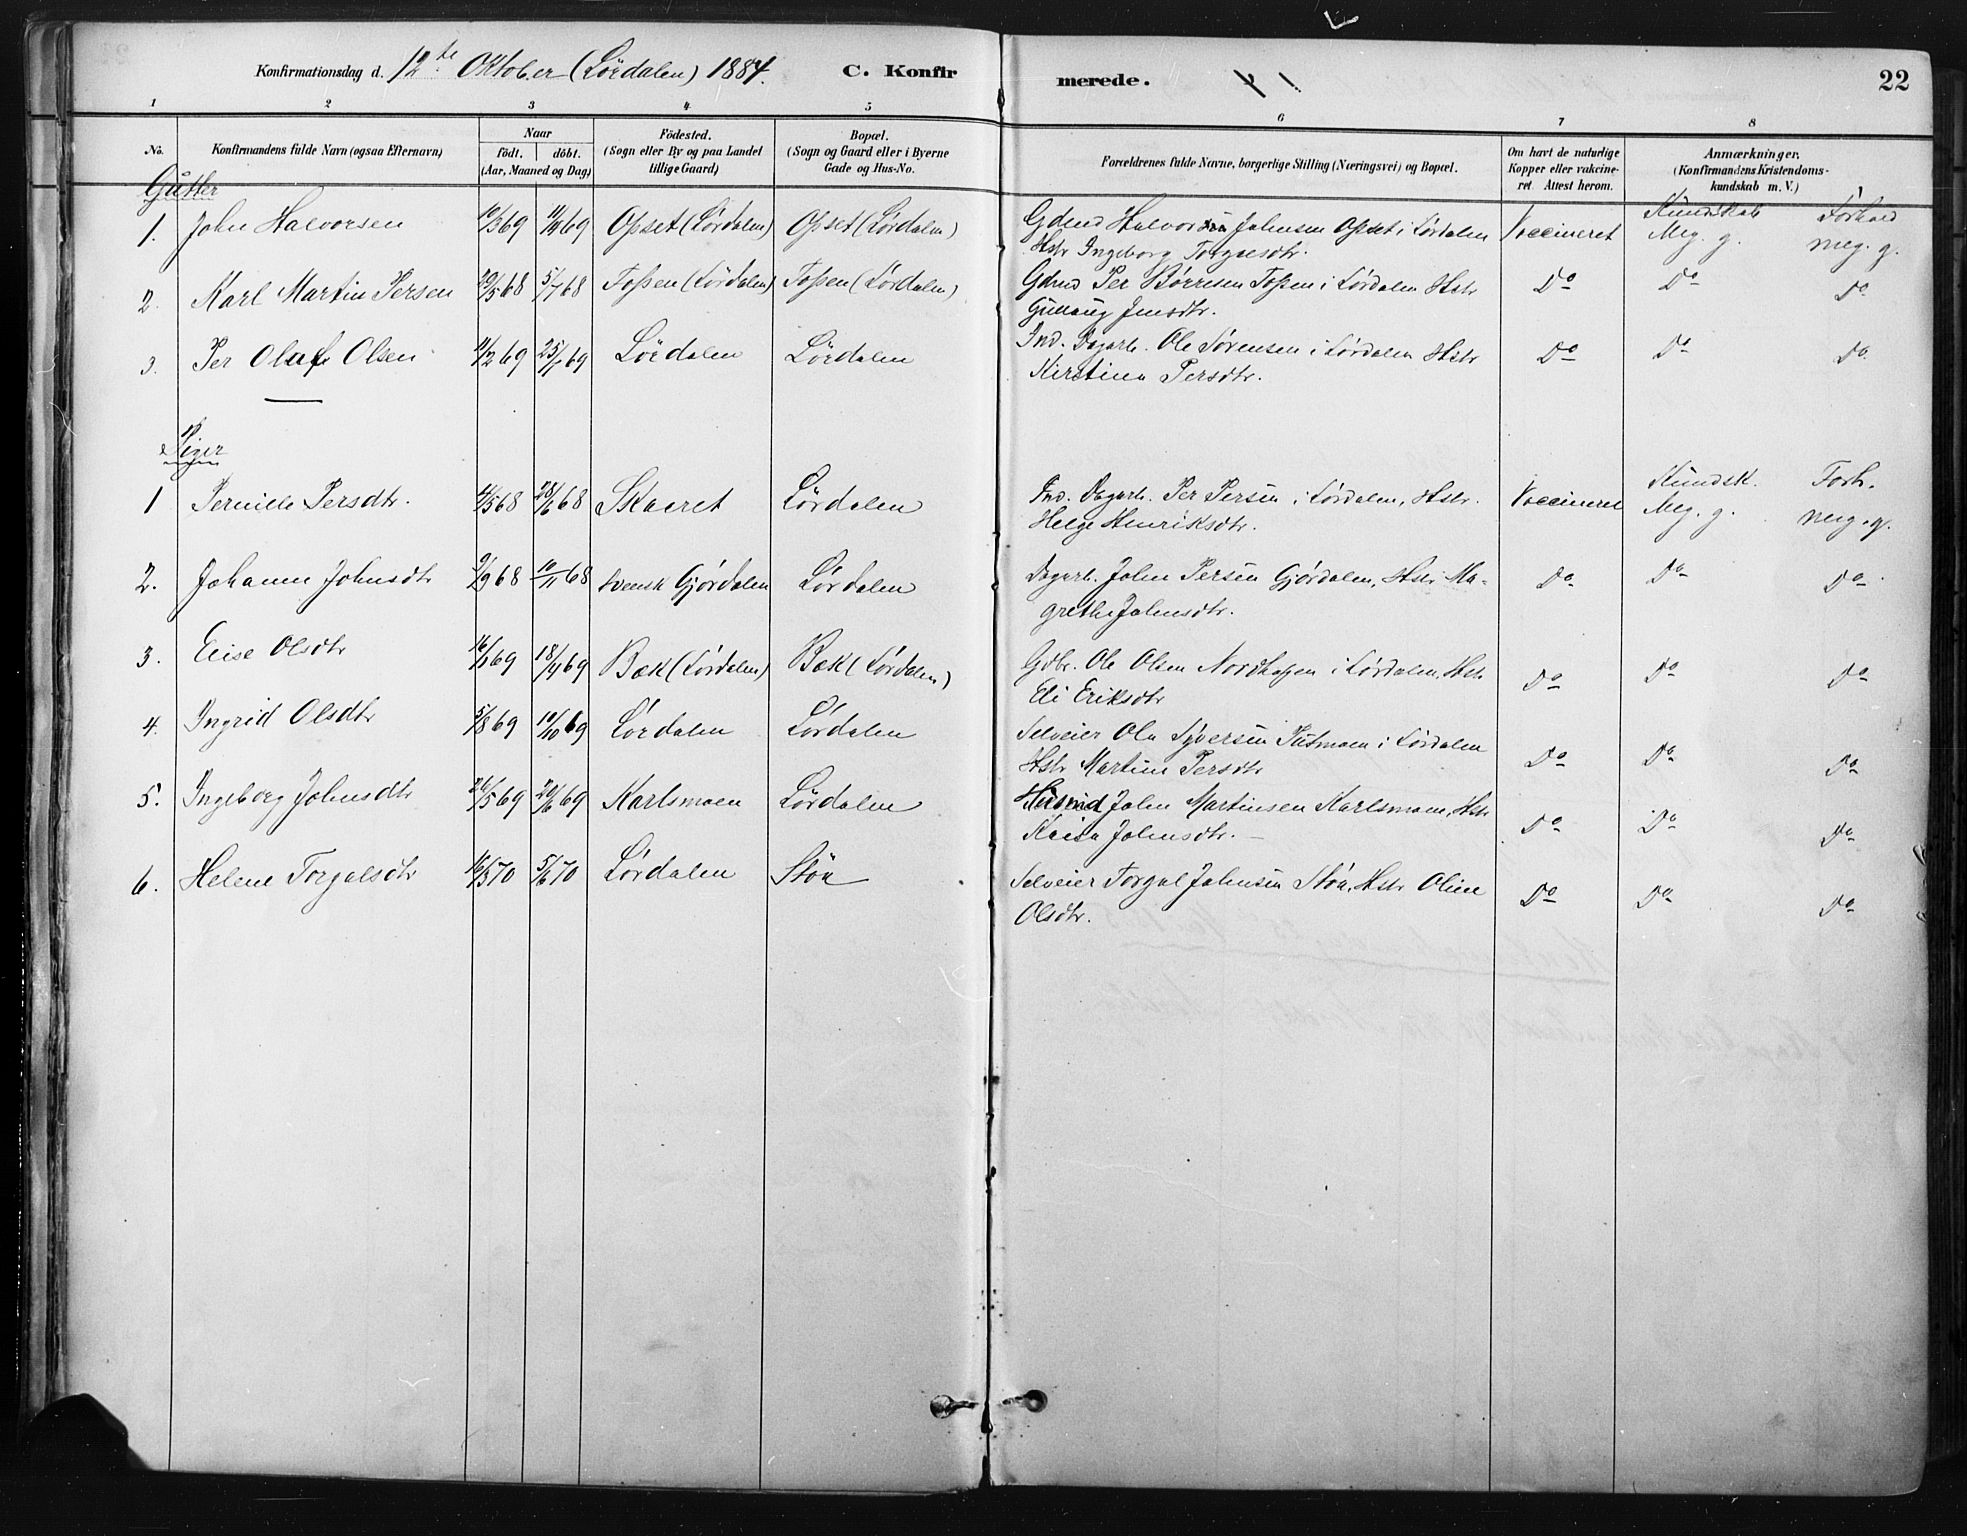 Konfirmationsdag d. 12te Oktober (Lördalen) 1884. C. Konfirmerede. 22
1 2 3 4 5 6 7 8
No. Konfirmandens fulde Navn (ogsaa Efternavn) Naar födt. döbt. (Aar, Maaned og Dag) Födested. (Sogn eller By og paa Landet tillige Gaard) Bopæl. (Sogn og Gaard eller i Byerne Gade og Hus-No. Forældrenes fulde Navne, borgerlige Stilling (Næringsvei) og Bopæl. Om havt de naturlige Kopper eller vakcineret Attest herom. Anmærkninger. (Konfirmandens Kristendomskundskab m. V.)
Gutter Kundskab Forhold
1. John Halvorsen 10/3 69 11/4 69 Opset (Lördalen) Opset (Lördalen) Gdmd Halvor Johnsen Opset i Lördalen Vaccineret Meg. g. meg. g.
Hstr Ingeborg Torgaesdtr.
2. Karl Martin Persen 20/5 68 5/7 68 Fossen (Lördalen) Fossen (Lördalen) Gdmd Per Börresen Fossen i Lördalen Hstr Do Do Do
Gullaug Jensdtr.
3. Per Oluf Olsen 11/2 69 25/7 69 Lördalen Lördalen Ind. Dagarb. Ole Sörensen i Lördalen Hstr Do Do Do
Kirstina Persdtr.
Piger
Kundsk. Forh.
1 Pernille Persdtr. 4/5 68 28/6 68 Skaaret Lördalen Ind. Dagarb. Per Persen i Lördalen, Hstr. Vaccineret Meg. g. meg. g.
Helge Henriksdtr.
2. Johanne Johnsdtr 9/9 68 10/11 68 svensk Gjördalen Lördalen Dagarb. John Persen Gjördalen, Hstr Ma- Do Do Do
grethe Johnsdtr.
3. Elise Olsdtr 16/1 69 18/4 69 Bæk (Lördalen) Bæk (Lördalen) Gdbr. Ole Olsen Nordhagen i Lördalen, Hstr Do Do Do
Eli Eriksdtr
4. Ingrid Olsdtr 5/8 69 10/10 69 Lördalen Lördalen Selveier Ole Syversen i Lördalen Do Do Do
Hstr Martine Persdtr
5. Ingeborg Johnsdtr 26/5 69 20/6 69 Karlsmoen Lördalen Husmd John Martinsen Karlsmoen, Hstr Do Do Do
Kaisa Johnsdtr.
6. Helene Torgalsdtr 16/3 70 5/6 70 Lördalen Stöa Selveier Torgal Johnsen Stöa, Hstr Oline Do Do Do
Olsdtr.